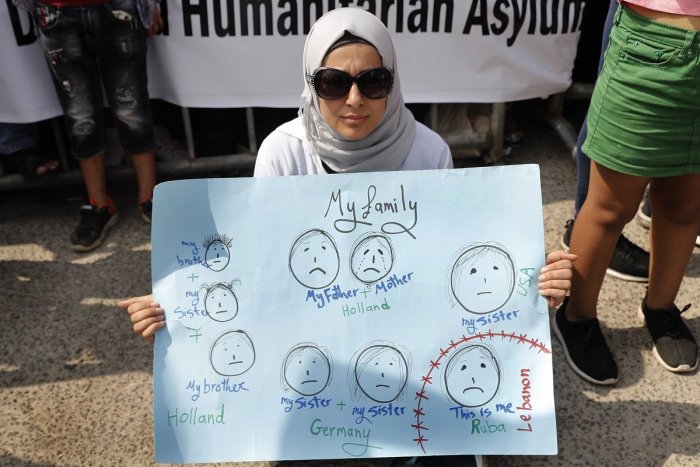 Humanitarian Asylum
My family
my
brother
+
my
Sister
+
My brother
Holland
My Father + Mother
Holland
my sister
USA
my sister + my sister
Germany
This is me
Ruba
Lebanon